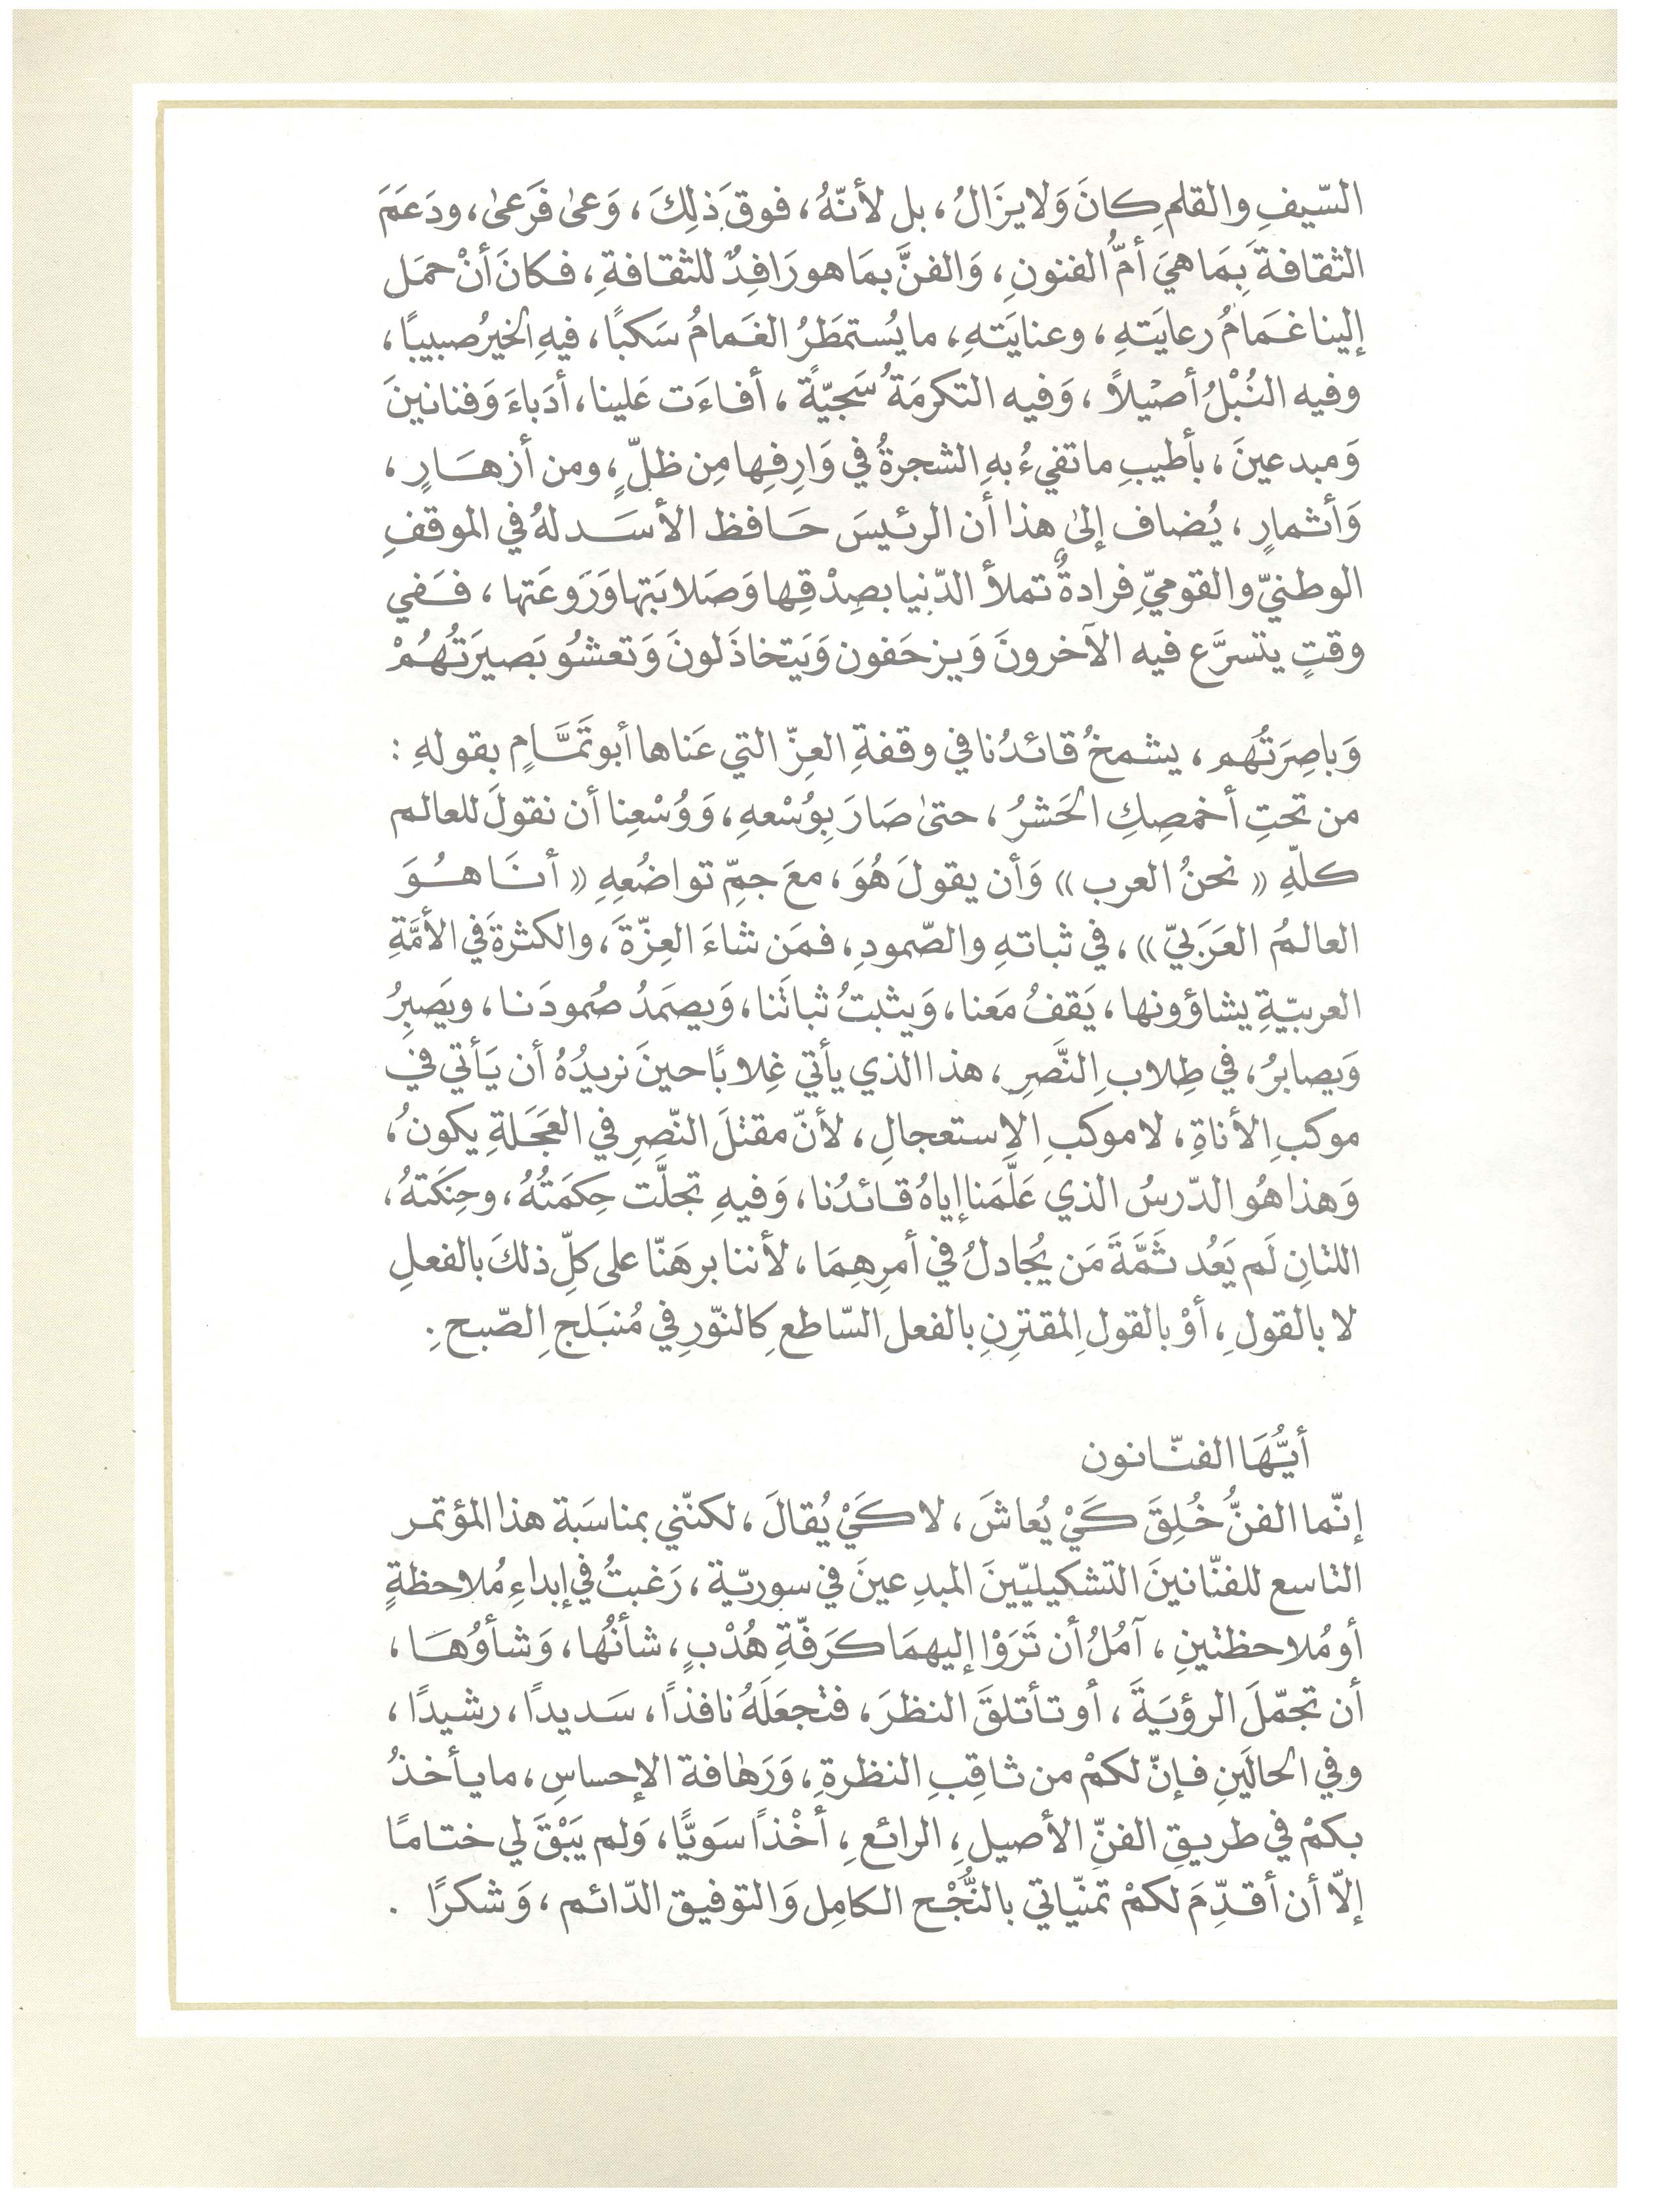 السّيفِ والقلمِ كانَ وَلا يزَالُ، بل لأنّهُ، فوقَ ذلِكَ، وَعىٰ فَرَعىٰ، ودَعَمَ
الثقافةَ بِمَا هيَ أمُّ الفنونِ، وَالفنَّ بمَا هو رَافِدٌ للثقافةِ، فكانَ أنْ حمَل
إلينا غمَامُ رعايَتهِ، وعنايَتهِ، ما يُستمطَرُ الغَمامُ سَكبًا، فيهِ الخيرُ صبيبًا،
وفيه النُبْلُ أصيْلاً، وَفيه التكرمَةُ سَجيّةً، أفاءَت عَلينا، أدَباءَ وَفنانينَ
وَمبدعينَ، بأطيبِ ما تفيءُ بهِ الشجرةُ في وَارِفِها مِن ظلٍّ، ومن أزهَارٍ،
وَأثمارٍ، يُضاف إلىٰ هذا أن الرئيسَ حَافظ الأسَد لهُ في الموقفِ
الوطنيّ والقوميِّ فرادةٌ تملأ الدّنيا بصِدْقِها وَصَلابَتِها وَرَوعَتها، ففَفي
وقتٍ يتسرَّع فيه الآخرونَ وَيزحَفون وَيَتخاذَلونَ وَتعشُو بَصيرَتُهُمْ
وَباصِرَتُهم، يشمخُ قائدُنا في وقفةِ العِزّ التي عَناها أبو تَمَّامٍ بقولهِ :
من تحتِ أخمصِكِ الحَشرُ، حتىٰ صَارَ بِوُسْعهِ، وَوُسْعِنا أن نقولَ للعالم
كلّهِ «نحنُ العرب» وَأن يقولَ هُوَ، معَ جمِّ تواضُعِهِ «أنَا هُوَ
العالمُ العَرَبيّ»، في ثباتهِ والصّمودِ، فمَن شاءَ العِزّةَ، والكثرةَ في الأمَّةِ
العربيّةِ يشاؤونها، يَقفُ مَعنا، وَيثبتُ ثباتَنا، وَيصمَدُ صُمودَنا، ويَصبِرُ
وَيصابرُ، في طِلابِ النَّصرِ، هذا الذي يأتي غِلابًا حينَ نريدُهُ أن يَأتي في
موكبِ الأناةِ، لا موكبِ الاستعجالِ، لأنّ مقتلَ النّصرِ في العَجَلةِ يكونُ،
وَهذا هُو الدّرسُ الذي عَلَّمَنا إياهُ قائدُنا، وَفيهِ تجلَّت حِكمَتُهُ، وحِنكَتهُ،
اللتانِ لَم يَعُد ثَمَّةَ مَن يُجادلُ في أمرِهِمَا، لأننا برهَنّا على كلِّ ذلكَ بالفعلِ
لا بالقولِ، أوْ بالقولِ المقترِنِ بالفعل السّاطعِ كالنّورِ في مُنبَلجِ الصّبحِ .
أيُّهَا الفنّانون
إنّما الفنُّ خُلِقَ كَيْ يُعاشَ، لا كَيْ يُقالَ، لكنّني بمناسَبة هذا المؤتمر
التاسع للفنّانينَ التشكيليّينَ المبدِعينَ في سوريّة، رَغبتُ في إبداءِ مُلاحظةٍ
أو مُلاحظتينِ، آمُلُ أن تَرَوْا إليهمَا كرَفّةِ هُدْبٍ، شأنُها، وَشأوُهَا،
أن تجمّلَ الرؤيَةَ، أو تأتلقَ النظرَ، فتجعَلَهُ نافذاً، سَديدًا، رشيدًا،
وفي الحالَينِ فإنّ لكمْ من ثاقِبِ النظرةِ، وَرَهافة الإحساسِ، ما يأخذُ
بكمْ في طريقِ الفنِّ الأصيلِ، الرائعِ، أخْذاً سَويًّا، وَلم يَبْقَ لي ختامًا
إلاّ أن أقدِّمَ لكمْ تمنّياتي بالنُّجْح الكامِل وَالتوفيق الدّائم، وَشكرًا .